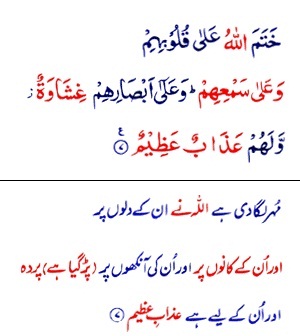 خَتَمَ اللّٰهُ عَلٰى قُلُوْبِهِمْ
وَعَلٰى سَمْعِهِمْ ؕ وَعَلٰٓى اَبْصَارِهِمْ غِشَاوَةٌ ز
وَّلَهُمْ عَذَابٌ عَظِيْمٌ ۠ ﴿۷﴾
مُہر لگا دی ہے اللہ نے ان کے دلوں پر
اور اُن کے کانوں پر اور اُن کی آنکھوں پر (پڑ گیا ہے) پردہ
اور اُن کے لیے ہے عذابِ عظیم ﴿۷﴾